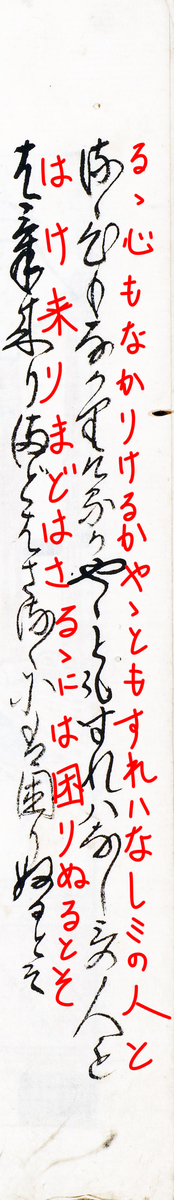 るゝ心もなかりけるかやゝともすれハなしミの人と
はけ来りまどはさるゝには困りぬるとそ